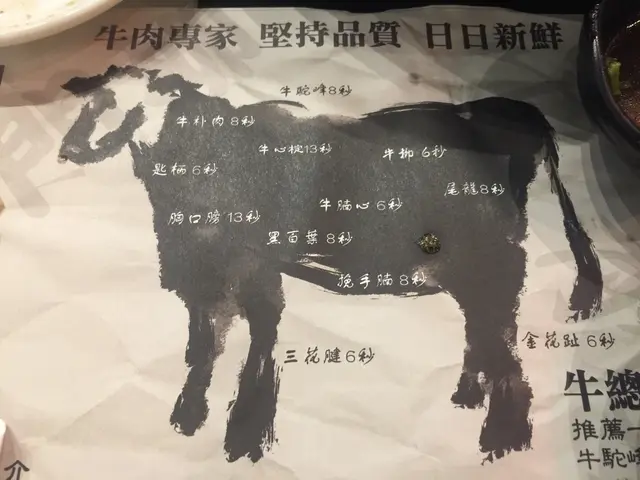 牛肉專家 堅持品質 日日新鮮
牛駝峰8秒
牛朴肉 8秒
牛心椗13秒
牛柳 6秒
匙柄 6秒
尾龍8秒
牛腩心 6秒
胸口膀 13秒
黑百葉 8秒
挽手腩 8秒
三花腱6秒
金花趾 6秒
牛總
推薦一
牛駝峰
介